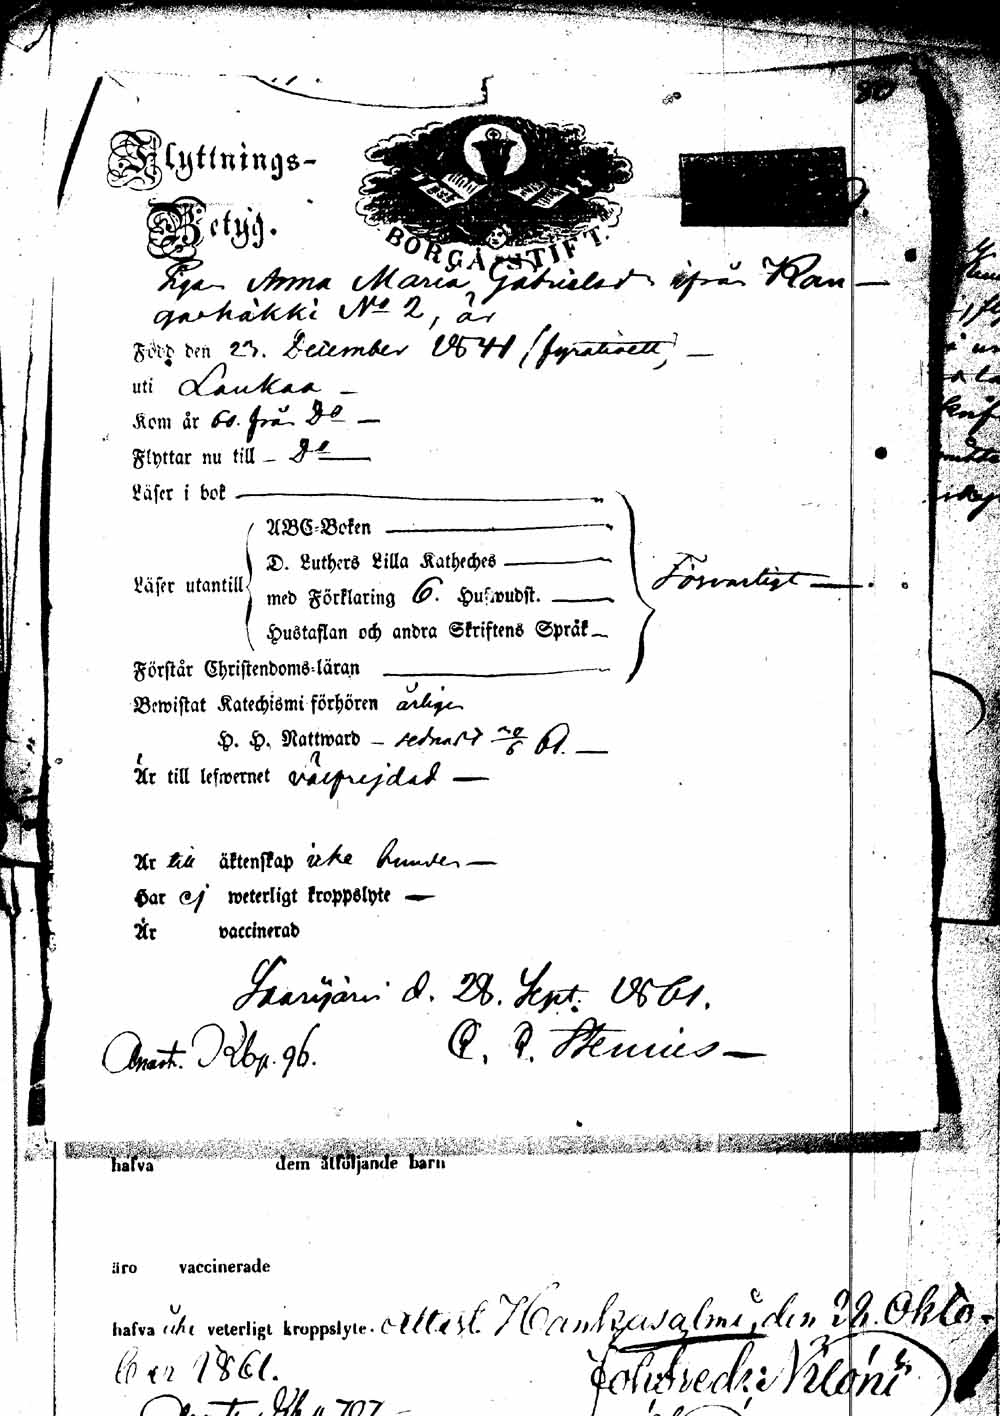 80
Flyttnings-
Betyg.
BORGÅ STIFT.
Pigan Anna Maria Gabrielsd. ifrån Kan-
gashäkki No 2, är
Född den 23. December 1841 (fyratioett) —
uti Laukaa —
Kom år 60. från Do —
Flyttar nu till — Do —
Läser i bok
ABC-Boken
D. Luthers Lilla Katheches
Läser utantill med Förklaring 6. Hufwudst. Försvarligt —
Hustaflan och andra Skriftens Språk
Förstår Christendoms-läran
Bewistat Katechismi förhören årligen
H. H. Nattward — sednast 6 61. —
Är till lefwernet välfrejdad —
Är till äktenskap icke bunden —
Har ej weterligt kroppslyte —
Är vaccinerad
Saarijärvi d. 28. Sept. 1861.
C. R. Stenius —
Anart. Kbp. 96.
hafva dem åtföljande barn
äro vaccinerade
hafva icke veterligt kroppslyte. Attest. Hankasalmi, den 22. Okto-
ber 1861.